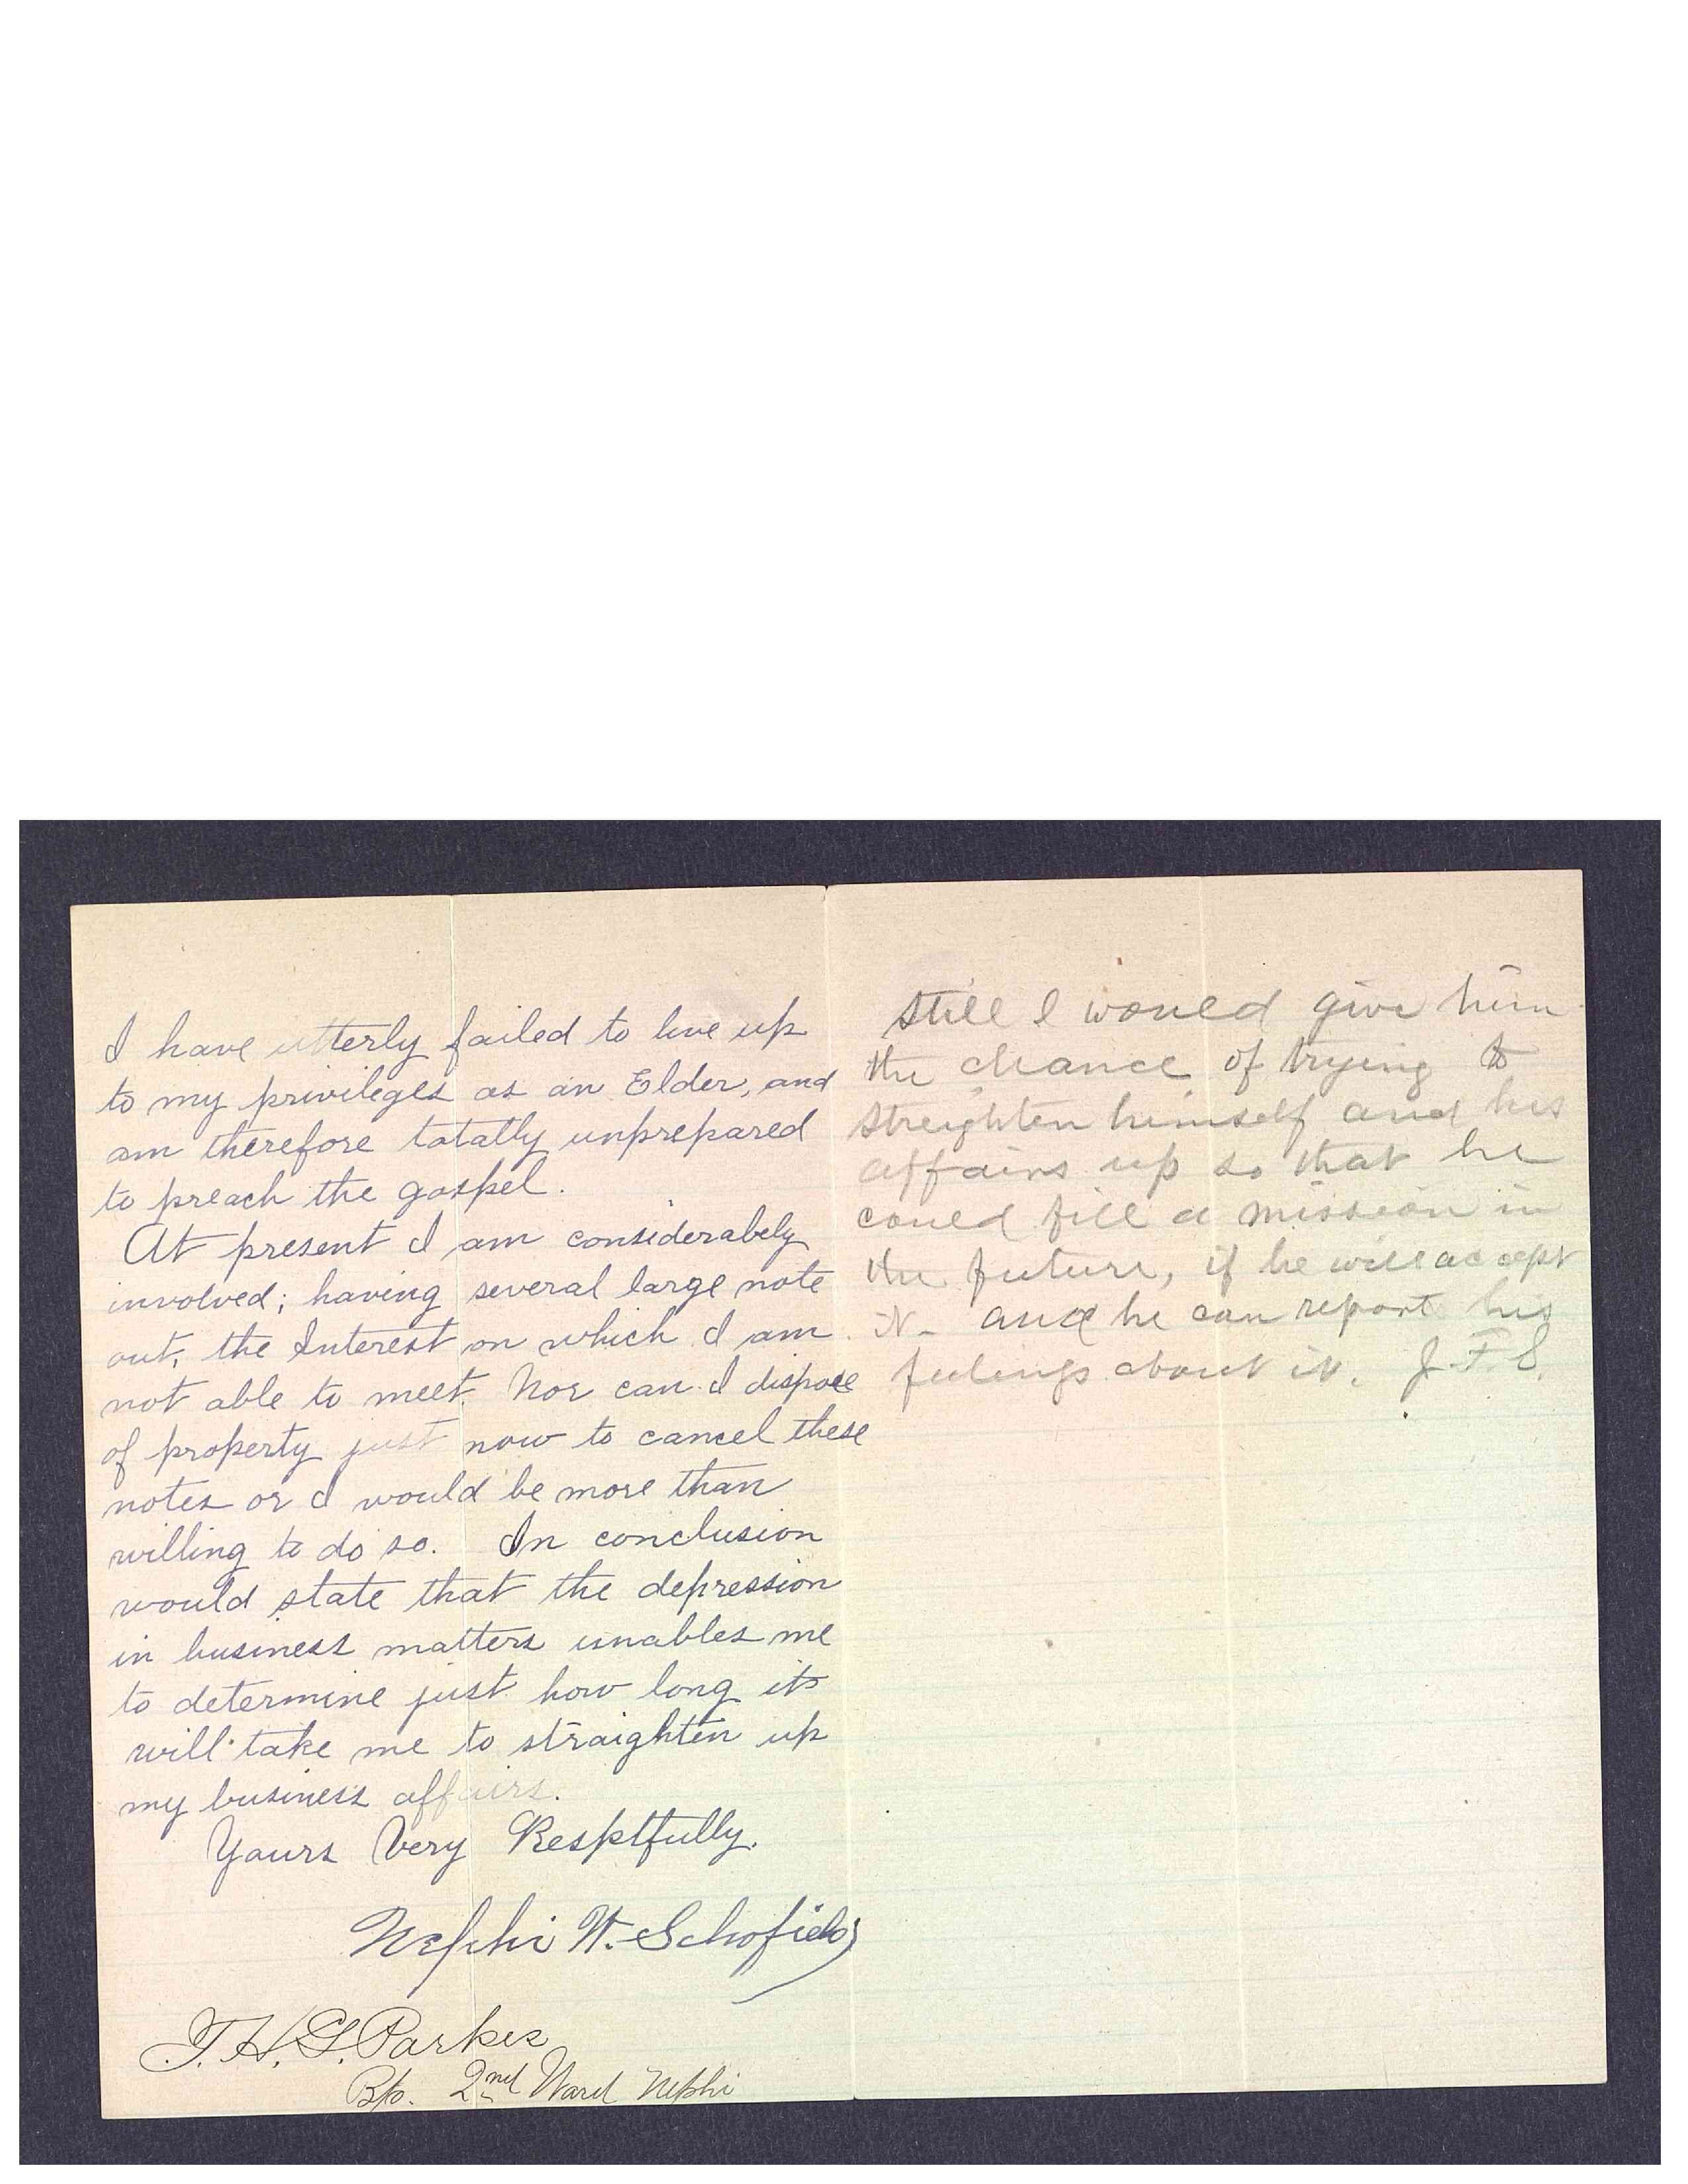 I have utterly failed to live up
to my privileges as an Elder, and
am therefore totally unprepared
to preach the gospel.
At present I am considerabely
involved; having several large note
out, the Interest on which I am
not able to meet. Nor can I dispose
of property just now to cancel these
notes or I would be more than
willing to do so. In conclusion
would state that the depression
in business matters unables me
to determine just how long it
will take me to straighten up
my business affairs.
Yours Very Resptfully.
Nephi W. Schofield
T. H. G. Parkes
Bp. 2nd Ward Nephi
Still I would give him
the chance of trying to
streighten himself and his
affairs up so that he
could fill a mission in
the future, if he will accept
it - and he can report his
feelings about it. J. F. S.